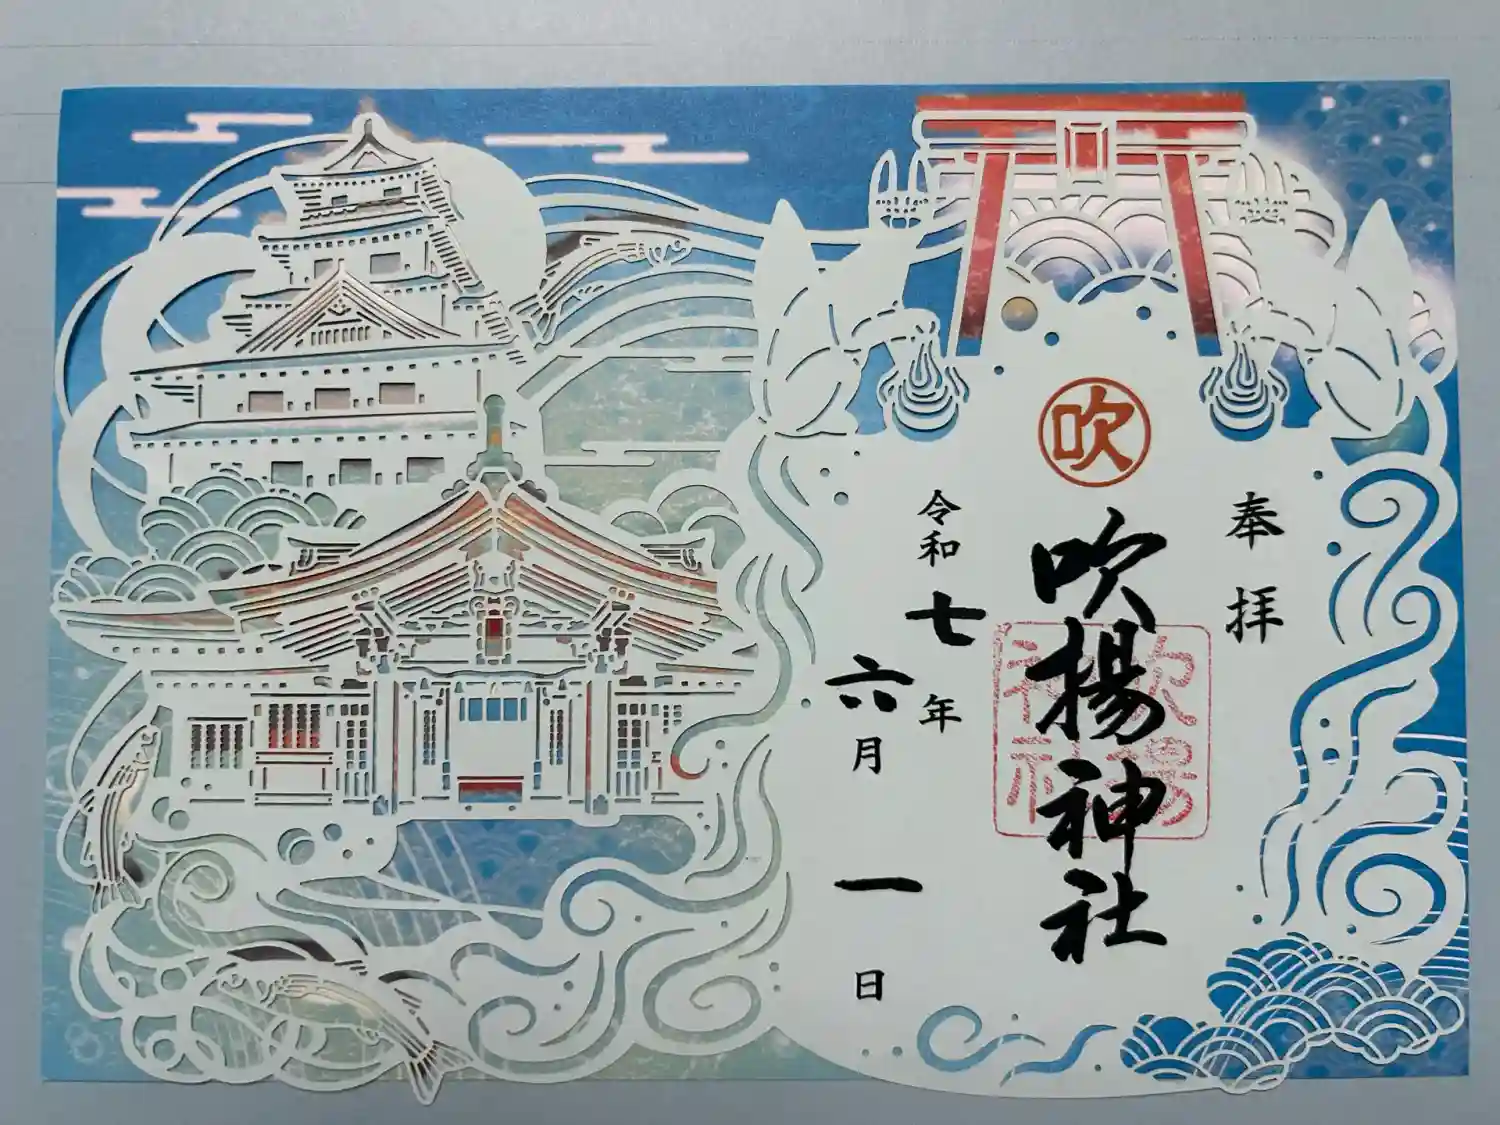 奉拝
吹
吹揚神社
吹揚
神社
令和七年
六月一日